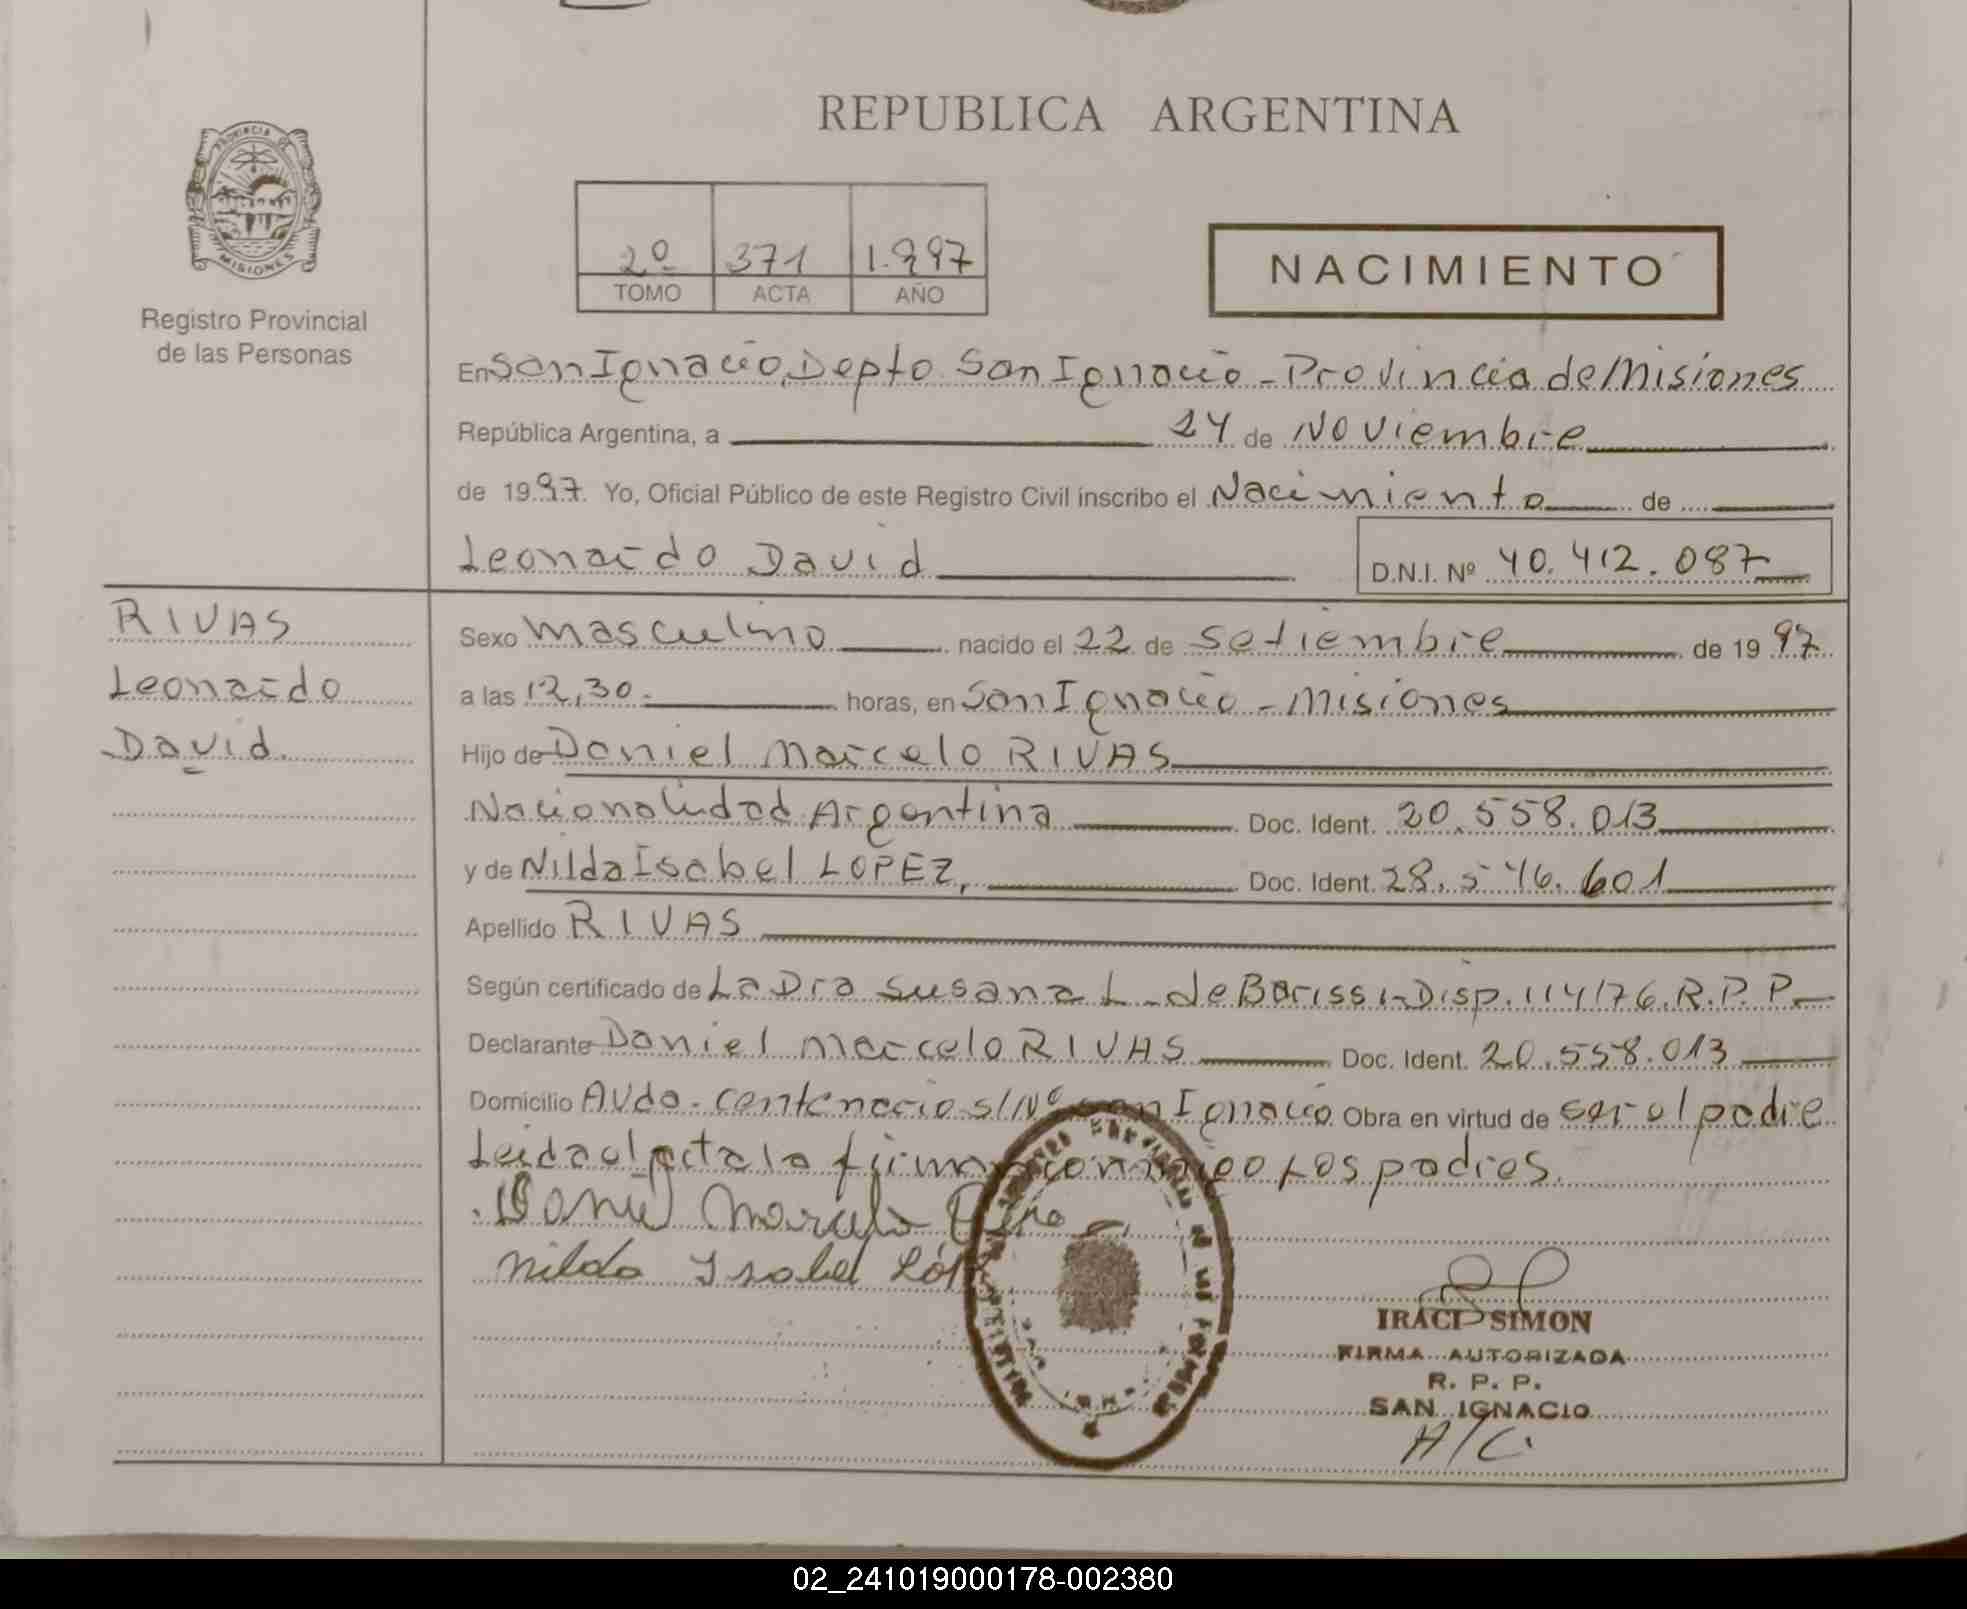 REPUBLICA ARGENTINA
PROVINCIA DE
MISIONES
Registro Provincial
de las Personas
2º 371 1.997
TOMO ACTA AÑO
NACIMIENTO
En San Ignacio, Depto San Ignacio - Provincia de Misiones
República Argentina, a 24 de Noviembre
de 1997. Yo, Oficial Público de este Registro Civil inscribo el Nacimiento de
Leonardo David
D.N.I. Nº 40.412.087
RIVAS
Leonardo
David.
Sexo masculino nacido el 22 de Setiembre de 1997
a las 12,30. horas, en San Ignacio - Misiones
Hijo de Daniel Marcelo RIVAS
Nacionalidad Argentina Doc. Ident. 20.558.013
y de Nilda Isabel LOPEZ, Doc. Ident. 28.546.601
Apellido RIVAS
Según certificado de La Dra Susana L. de Barissi - Disp. 114/76. R.P.P.
Declarante Daniel Marcelo RIVAS Doc. Ident. 20.558.013
Domicilio Avda. Centenario s/Nº San Ignacio Obra en virtud de ser el padre
Leida el acta la firman conmigo Los padres.
Daniel Marcelo
Nilda Isabel López
IRACI SIMON
FIRMA AUTORIZADA
R. P. P.
SAN IGNACIO
A/C.
02_241019000178-002380